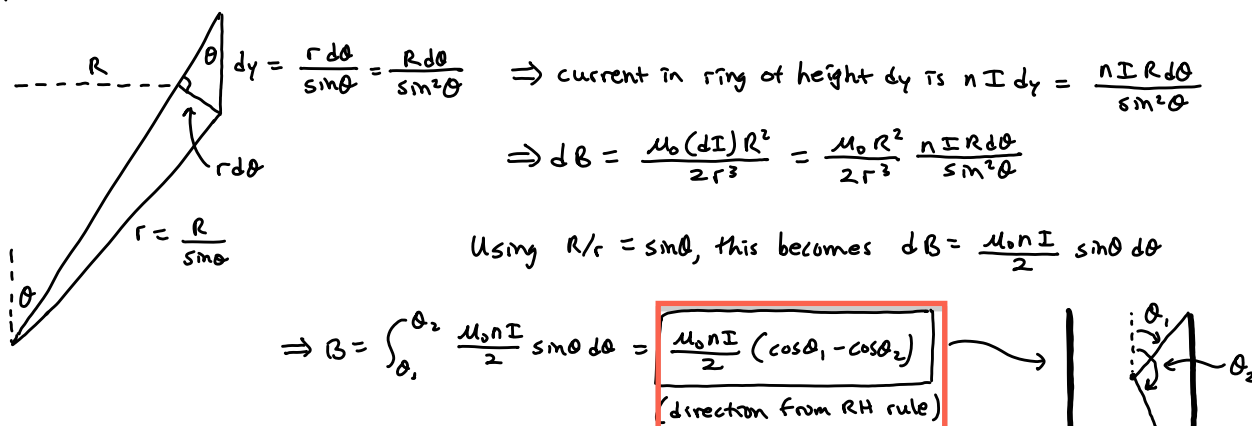 R
θ
dy = r dθ / sinθ = R dθ / sin²θ ⇒ current in ring of height dy is n I dy = n I R dθ / sin²θ
r dθ
⇒ dB = μ₀ (dI) R² / 2r³ = μ₀ R² / 2r³ n I R dθ / sin²θ
r = R / sinθ
Using R/r = sinθ, this becomes dB = μ₀ n I / 2 sinθ dθ
θ
⇒ B = ∫_θ₁^θ₂ μ₀ n I / 2 sinθ dθ = μ₀ n I / 2 (cosθ₁ - cosθ₂)
θ₁
θ₂
(direction from RH rule)